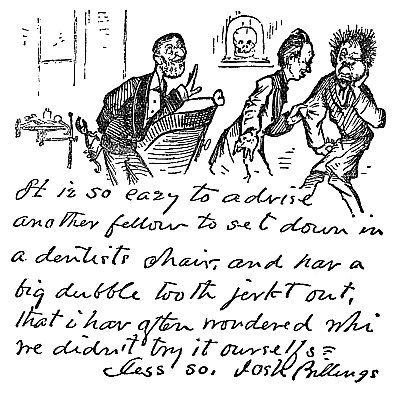 It iz so eazy to advise
another fellow to set down in
a dentists chair, and hav a
big dubble tooth jerkt out,
that i hav often wondered whi
we didn't try it ourselfs =
Less so. Josh Billings